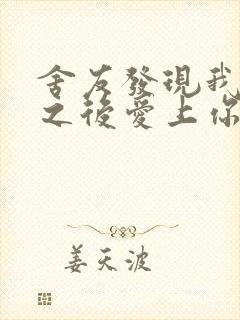 舍友發現我
之後愛上你
姜天波